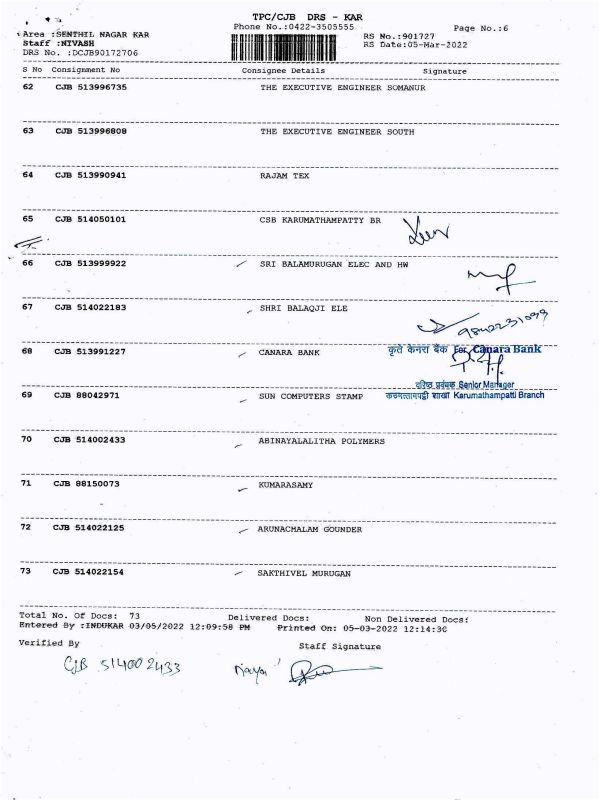 TPC/CJB DRS - KAR
Phone No.:0422-3505555
Page No.:6
Area :SENTHIL NAGAR KAR
Staff :NIVASH
DRS No. :DCJB90172706
RS No.:901727
RS Date:05-Mar-2022
S No Consignment No Consignee Details Signature
62 CJB 513996735 THE EXECUTIVE ENGINEER SOMANUR
63 CJB 513996808 THE EXECUTIVE ENGINEER SOUTH
64 CJB 513990941 RAJAM TEX
65 CJB 514050101 CSB KARUMATHAMPATTY BR
66 CJB 513999922 SRI BALAMURUGAN ELEC AND HW
67 CJB 514022183 SHRI BALAQJI ELE
9842231099
68 CJB 513991227 CANARA BANK
कृते केनरा बैंक For Canara Bank
वरिष्ठ प्रबंधक Senior Manager
69 CJB 88042971 SUN COMPUTERS STAMP
Karumathampatti Branch
70 CJB 514002433 ABINAYALALITHA POLYMERS
71 CJB 88150073 KUMARASAMY
72 CJB 514022125 ARUNACHALAM GOUNDER
73 CJB 514022154 SAKTHIVEL MURUGAN
Total No. Of Docs: 73 Delivered Docs: Non Delivered Docs:
Entered By :INDUKAR 03/05/2022 12:09:58 PM Printed On: 05-03-2022 12:14:30
Verified By Staff Signature
CJB 514002433